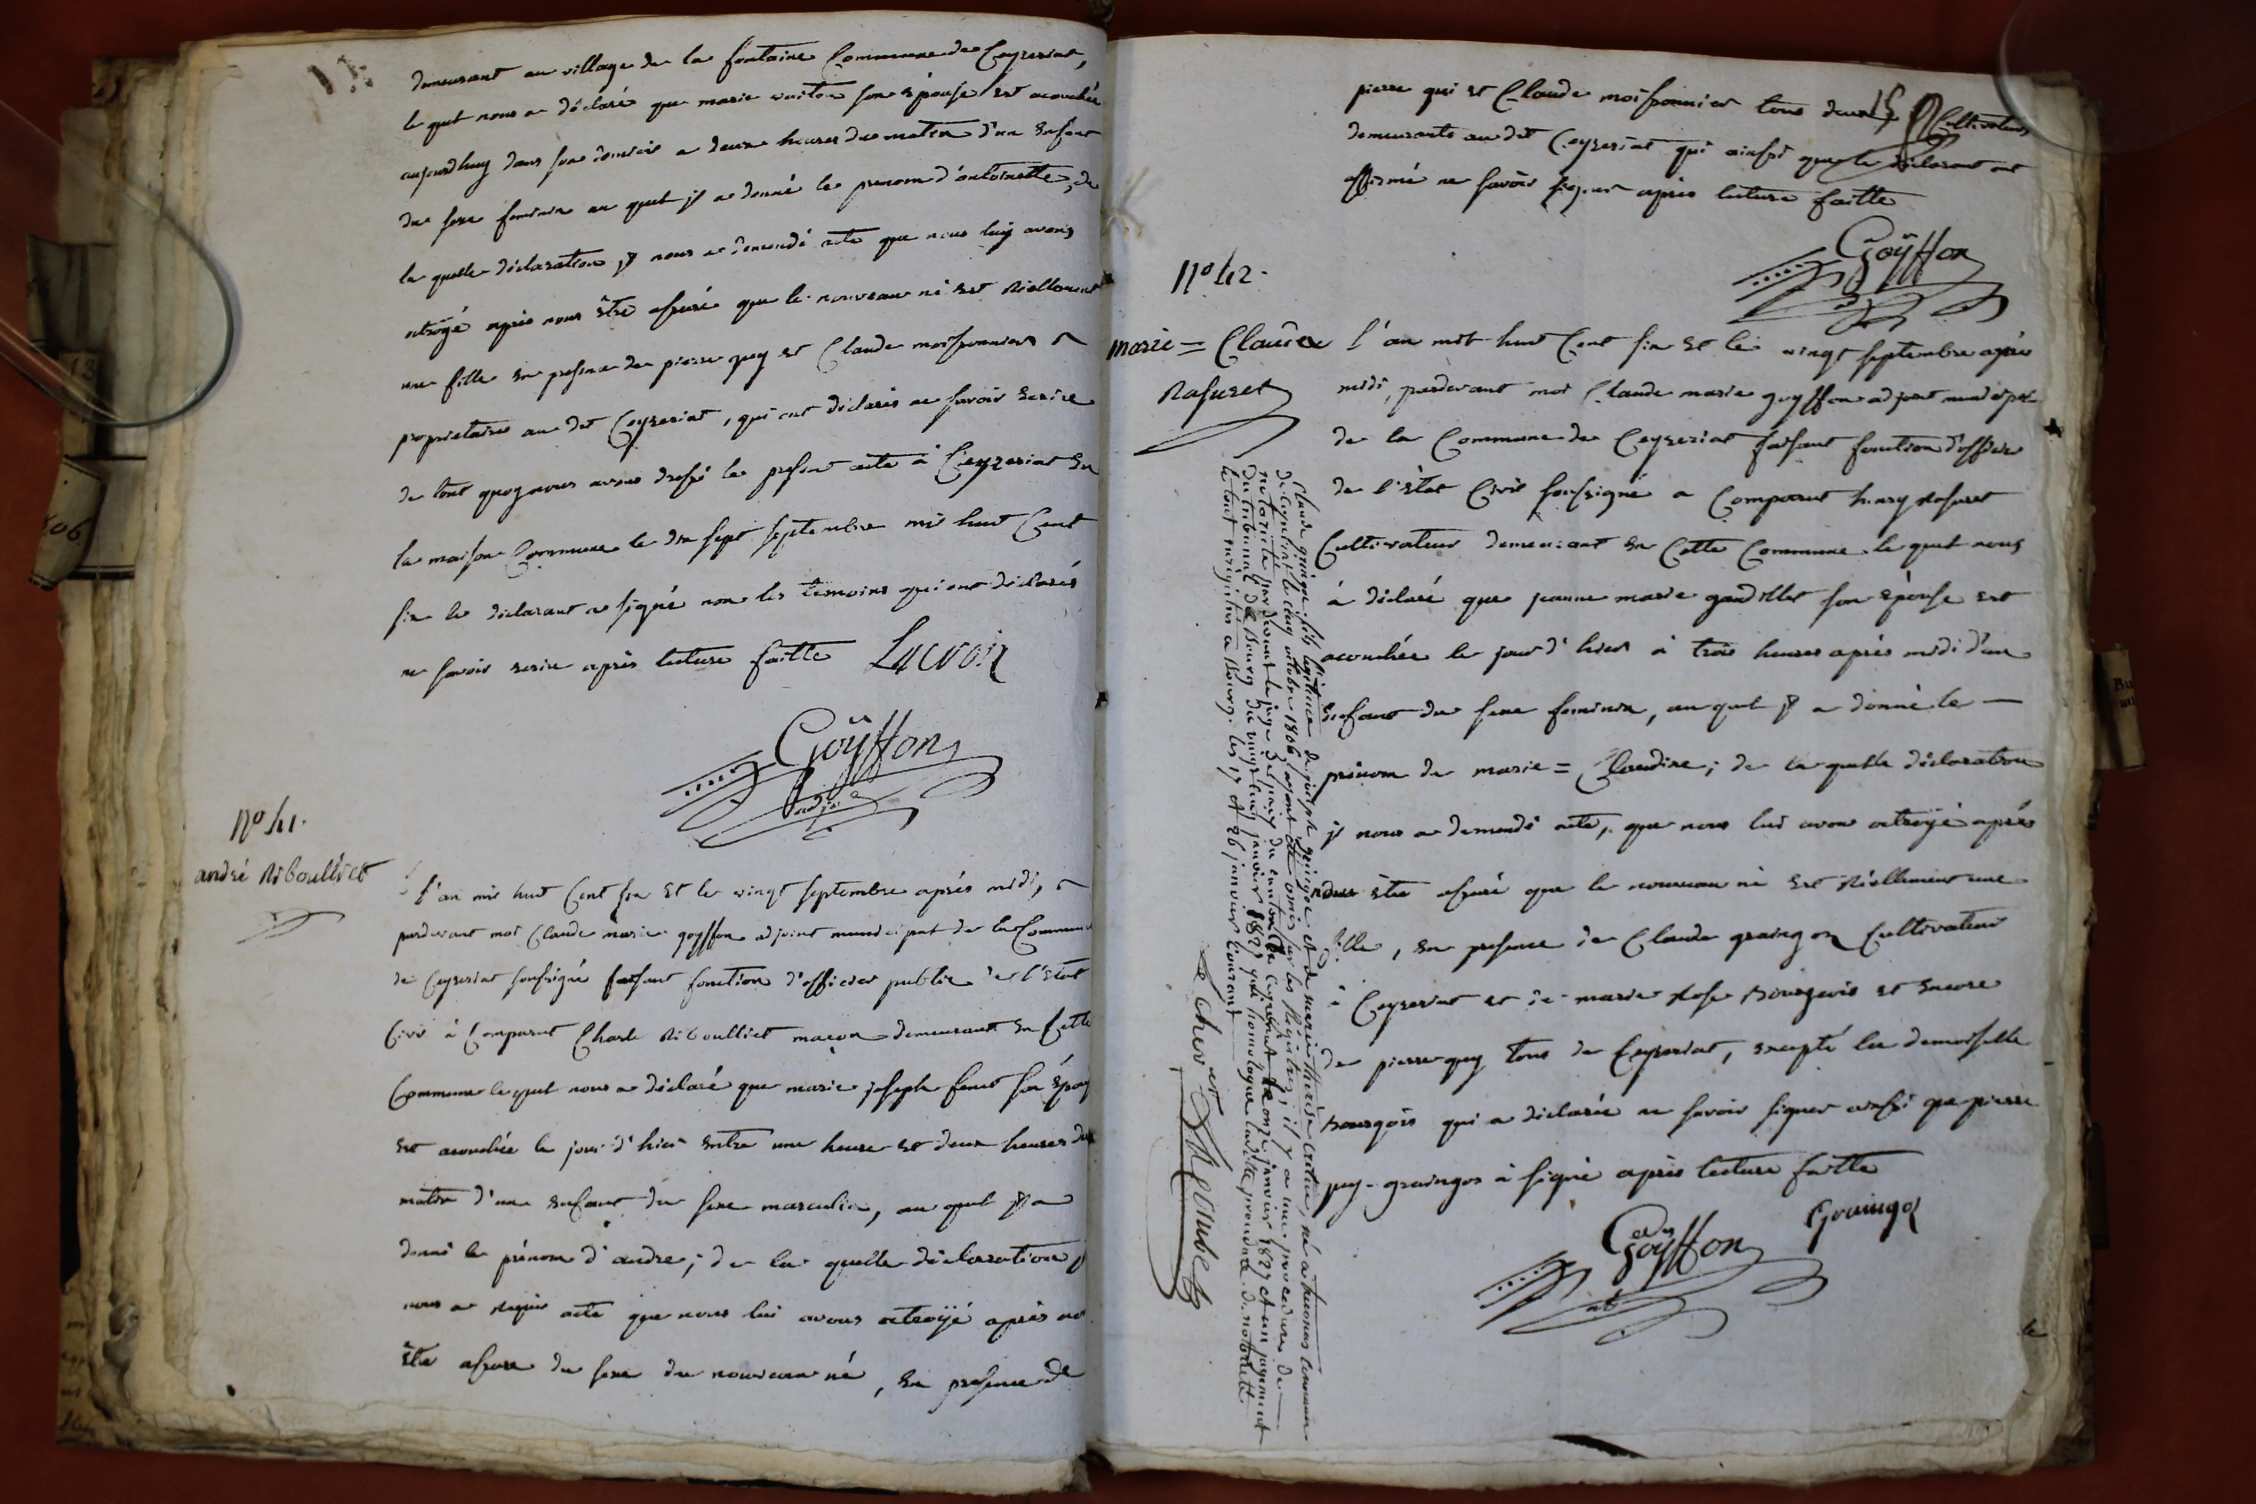 demeurant au village de la fontaine Commune de Ceyzeriat,
le quel nous a déclaré que marie son épouse est acouchée
aujourdhuy dans son domicile a deux heures du matin d'un Enfant
du sexe feminin au quel jl a donné le prenom d'antoinette, de
la quelle déclaration jl nous a demandé acte que nous luy avons
octroyé après nous être assuré que le nouveau né est Réellement
une fille en presence de pierre puy et Claude moissonnier
proprietaires au dit Ceyzeriat, qui ont déclarés ne savoir Ecrire
de tout quoy nous avons dressé le present acte à Ceyzeriat En
la maison Commune le dix sept septembre mil huit Cent
six le declarant a signé non les temoins qui ont déclarés
ne savoir ecrire après lecture faitte Lacroix
Goÿffon
adj
N° 41.
andré Riboulliet
l'an mil huit Cent six et le vingt septembre après midi,
pardevant moi Claude marie goyffon adjoint municipal de la Commune
de Ceyzeriat soussigné faisant fonction d'officier public de l'état
Civil à Comparut Charle Riboulliet maçon demeurant En Cette
Commune le quel nous a déclaré que marie joseph son Epouse
est acouchée le jour d'hier entre une heure et deux heures du
matin d'un enfant du sexe masculin, au quel jl a
donné le prénom d'andre; de la quelle déclaration jl
nous a Requis acte que nous lui avons octroyé après nous
être assuré du sexe du nouveau né, En presence de
pierre puy et Claude moissonnier tous deux Cultivateurs
demeurants au dit Ceyzeriat qui ainsi que le déclarant ont
affirmé ne savoir signer après lecture faitte
Goÿffon
N° 42.
marie = Claudine
Rasurel
l'an mil huit Cent six et le vingt septembre après
midi, pardevant moi Claude marie goyffon adjoint municipal
de la Commune de Ceyzeriat faisant fonction d'officier
de l'état Civil soussigné a Comparut henry Rasurel
Cultivateur demeurant en Cette Commune le quel nous
à déclaré que jeanne marie gandillet son épouse est
acouchée le jour d'hier à trois heures après midi d'un
enfant du sexe feminin, au quel jl a donné le
prénom de marie = Claudine; de la quelle déclaration
jl nous a demandé acte, que nous lui avons octroyé après
nous être assuré que le nouveau né est Réellement une
fille, En presence de Claude graingon Cultivateur
à Ceyzeriat et de marie Rose Bourgeois et Encore
de pierre puy tous de Ceyzeriat, excepté la demoiselle
Bourgois qui a déclarée ne savoir signer ainsi que pierre
puy. graingor à signé après lecture faitte
Graingor
Goÿffon
adj
Claude fils legitime de joseph et de marie therèse né à commune
de Ceyzeriat le cinq octobre 1806, ayant été omis sur les Registres, il y a une procedure de
notoriété par devant le juge de paix du canton de Ceyzeriat le onze janvier 1827 et un jugement
du tribunal de Bourg du janvier 1827 qui homologue la dite procedure de notorieté
le tout enregistré à Bourg les 17 et 26 janvier Courant